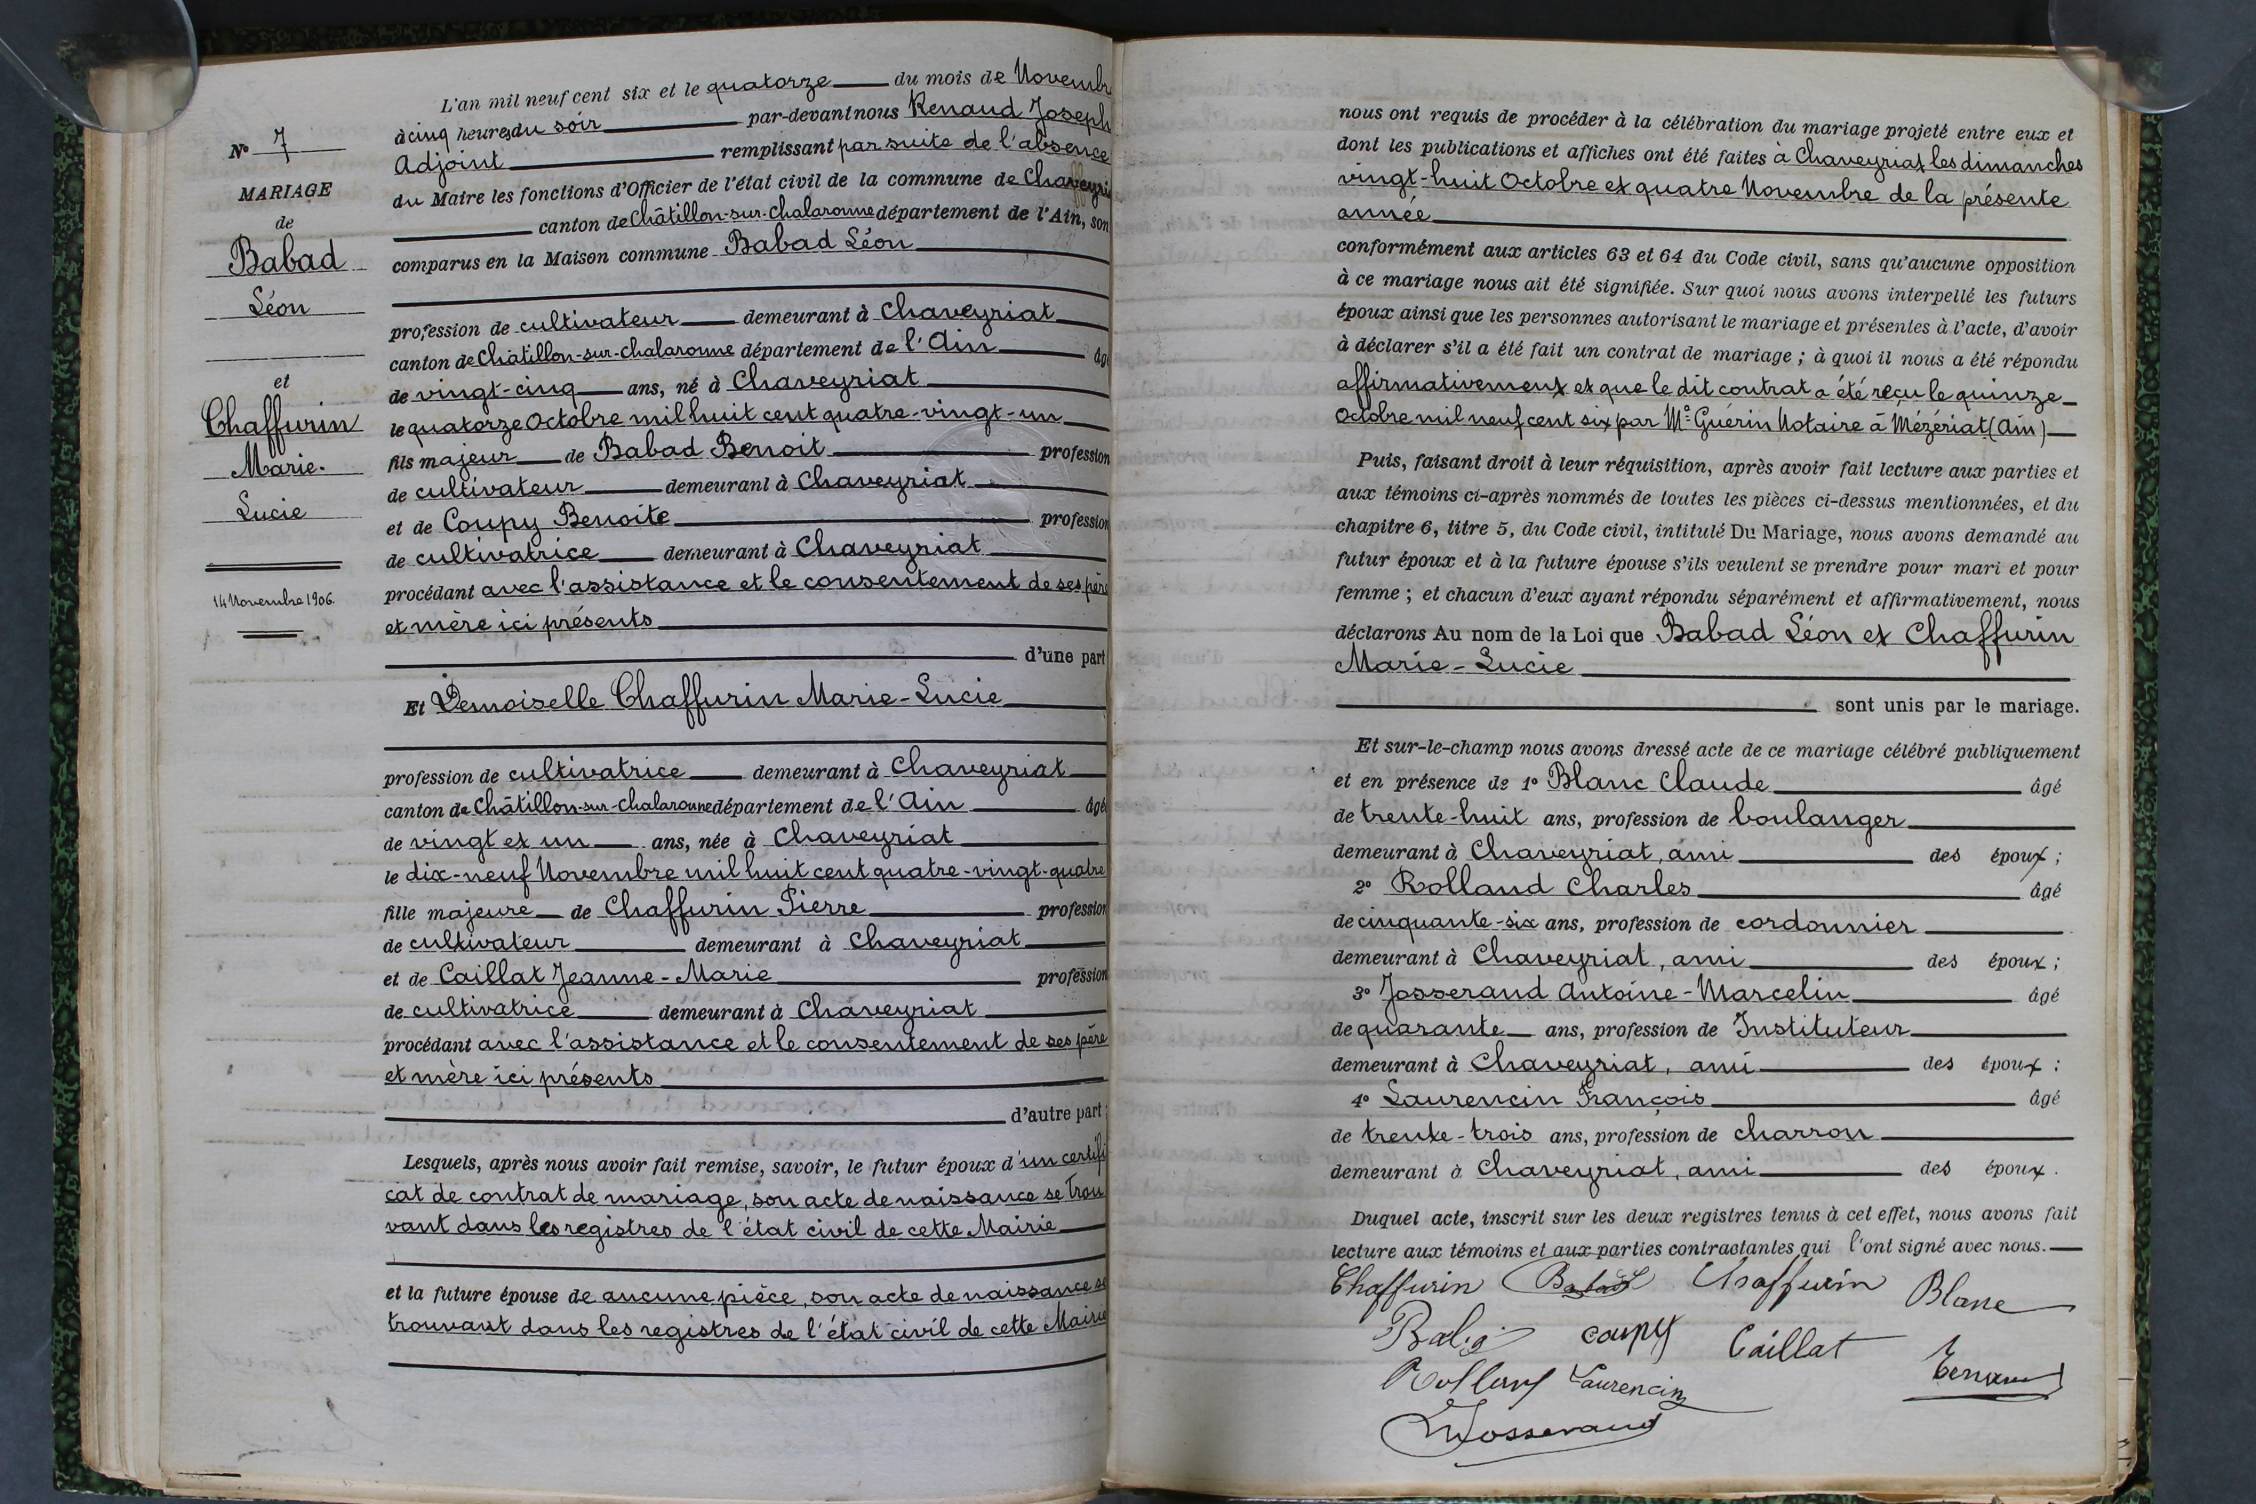 L'an mil neuf cent six et le quatorze du mois de Novembr
à cinq heures du soir par-devant nous Renaud Joseph
Adjoint remplissant par suite de l'absence
du Maire les fonctions d'Officier de l'état civil de la commune de Chaveyri
canton de Châtillon-sur-Chalaronne département de l'Ain, son
comparus en la Maison commune Babad Léon
profession de cultivateur demeurant à Chaveyriat
canton de Châtillon-sur-Chalaronne département de l'Ain âgé
de vingt-cinq ans, né à Chaveyriat
le quatorze Octobre mil huit cent quatre-vingt-un
fils majeur de Babad Benoit profession
de cultivateur demeurant à Chaveyriat
et de Coupy Benoite profession
de cultivatrice demeurant à Chaveyriat
procédant avec l'assistance et le consentement de ses père
et mère ici présents
d'une part
Et Demoiselle Chaffurin Marie-Lucie
profession de cultivatrice demeurant à Chaveyriat
canton de Châtillon-sur-Chalaronne département de l'Ain âgé
de vingt et un ans, née à Chaveyriat
le dix-neuf Novembre mil huit cent quatre-vingt-quatre
fille majeure de Chaffurin Pierre profession
de cultivateur demeurant à Chaveyriat
et de Caillat Jeanne-Marie profession
de cultivatrice demeurant à Chaveyriat
procédant avec l'assistance et le consentement de ses père
et mère ici présents
d'autre part;
Lesquels, après nous avoir fait remise, savoir, le futur époux d'un certifi
cat de contrat de mariage, son acte de naissance se trou
vant dans les registres de l'état civil de cette Mairie
et la future épouse de aucune pièce, son acte de naissance se
trouvant dans les registres de l'état civil de cette Mairie
N° 7
MARIAGE
de
Babad
Léon
et
Chaffurin
Marie-
Lucie
14 Novembre 1906.
nous ont requis de procéder à la célébration du mariage projeté entre eux et
dont les publications et affiches ont été faites à Chaveyriat les dimanches
vingt-huit Octobre et quatre Novembre de la présente
année
conformément aux articles 63 et 64 du Code civil, sans qu'aucune opposition
à ce mariage nous ait été signifiée. Sur quoi nous avons interpellé les futurs
époux ainsi que les personnes autorisant le mariage et présentes à l'acte, d'avoir
à déclarer s'il a été fait un contrat de mariage ; à quoi il nous a été répondu
affirmativement et que le dit contrat a été reçu le quinze
Octobre mil neuf cent six par Me Guérin Notaire à Mézériat (Ain)
Puis, faisant droit à leur réquisition, après avoir fait lecture aux parties et
aux témoins ci-après nommés de toutes les pièces ci-dessus mentionnées, et du
chapitre 6, titre 5, du Code civil, intitulé Du Mariage, nous avons demandé au
futur époux et à la future épouse s'ils veulent se prendre pour mari et pour
femme ; et chacun d'eux ayant répondu séparément et affirmativement, nous
déclarons Au nom de la Loi que Babad Léon et Chaffurin
Marie-Lucie
sont unis par le mariage.
Et sur-le-champ nous avons dressé acte de ce mariage célébré publiquement
et en présence de 1° Blanc Claude âgé
de trente-huit ans, profession de boulanger
demeurant à Chaveyriat, ami des époux ;
2° Rolland Charles âgé
de cinquante-six ans, profession de cordonnier
demeurant à Chaveyriat, ami des époux ;
3° Josserand Antoine-Marcelin âgé
de quarante ans, profession de Instituteur
demeurant à Chaveyriat, ami des époux :
4° Laurencin François âgé
de trente-trois ans, profession de charron
demeurant à Chaveyriat, ami des époux.
Duquel acte, inscrit sur les deux registres tenus à cet effet, nous avons fait
lecture aux témoins et aux parties contractantes qui l'ont signé avec nous.
Chaffurin Babad Chaffurin Blanc
coupy Caillat
Rolland Laurencin Renaud
Josserand